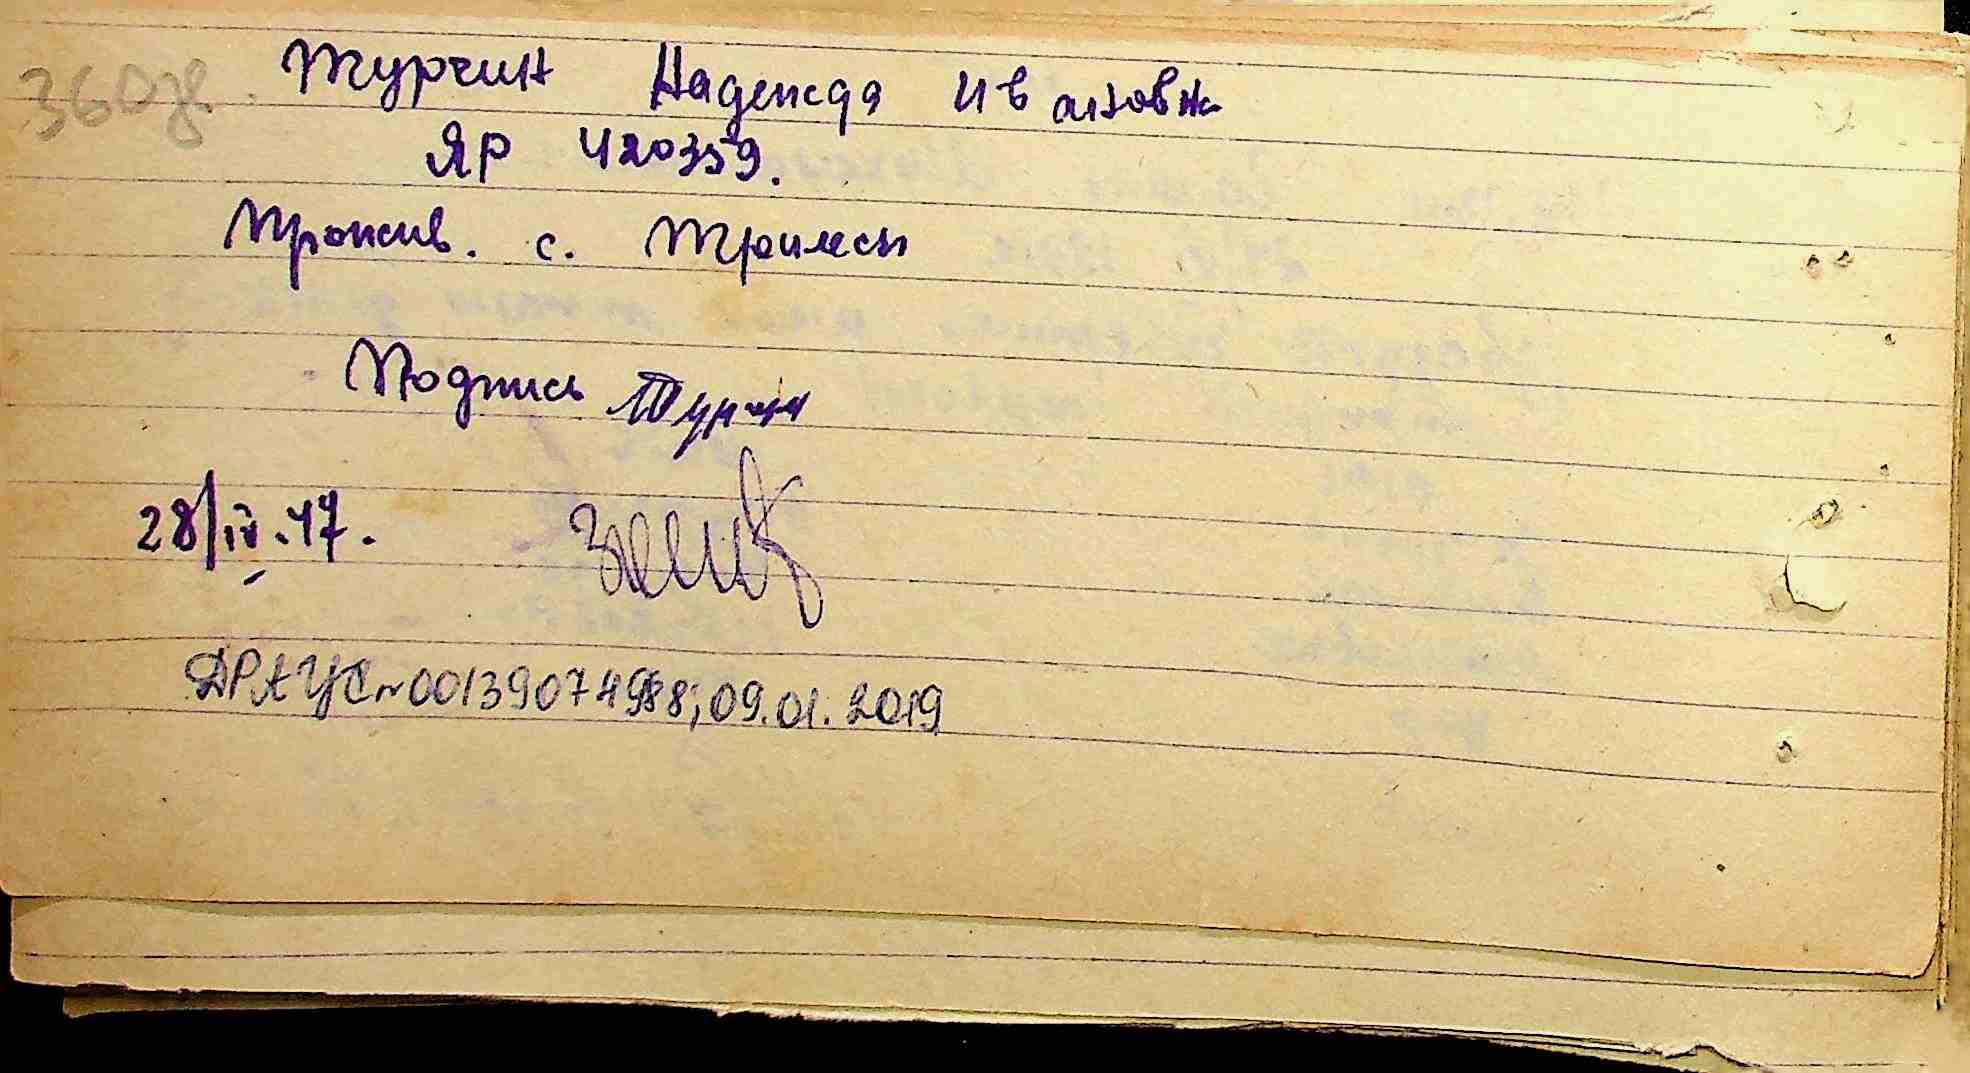 360 зв.
Турчин Надежда Ивановна
ЯР 420359.
Прожив. с. Трилесы
Подпись Турчин
28/IV.47.
ДРАЦС~00139074988; 09.01.2019